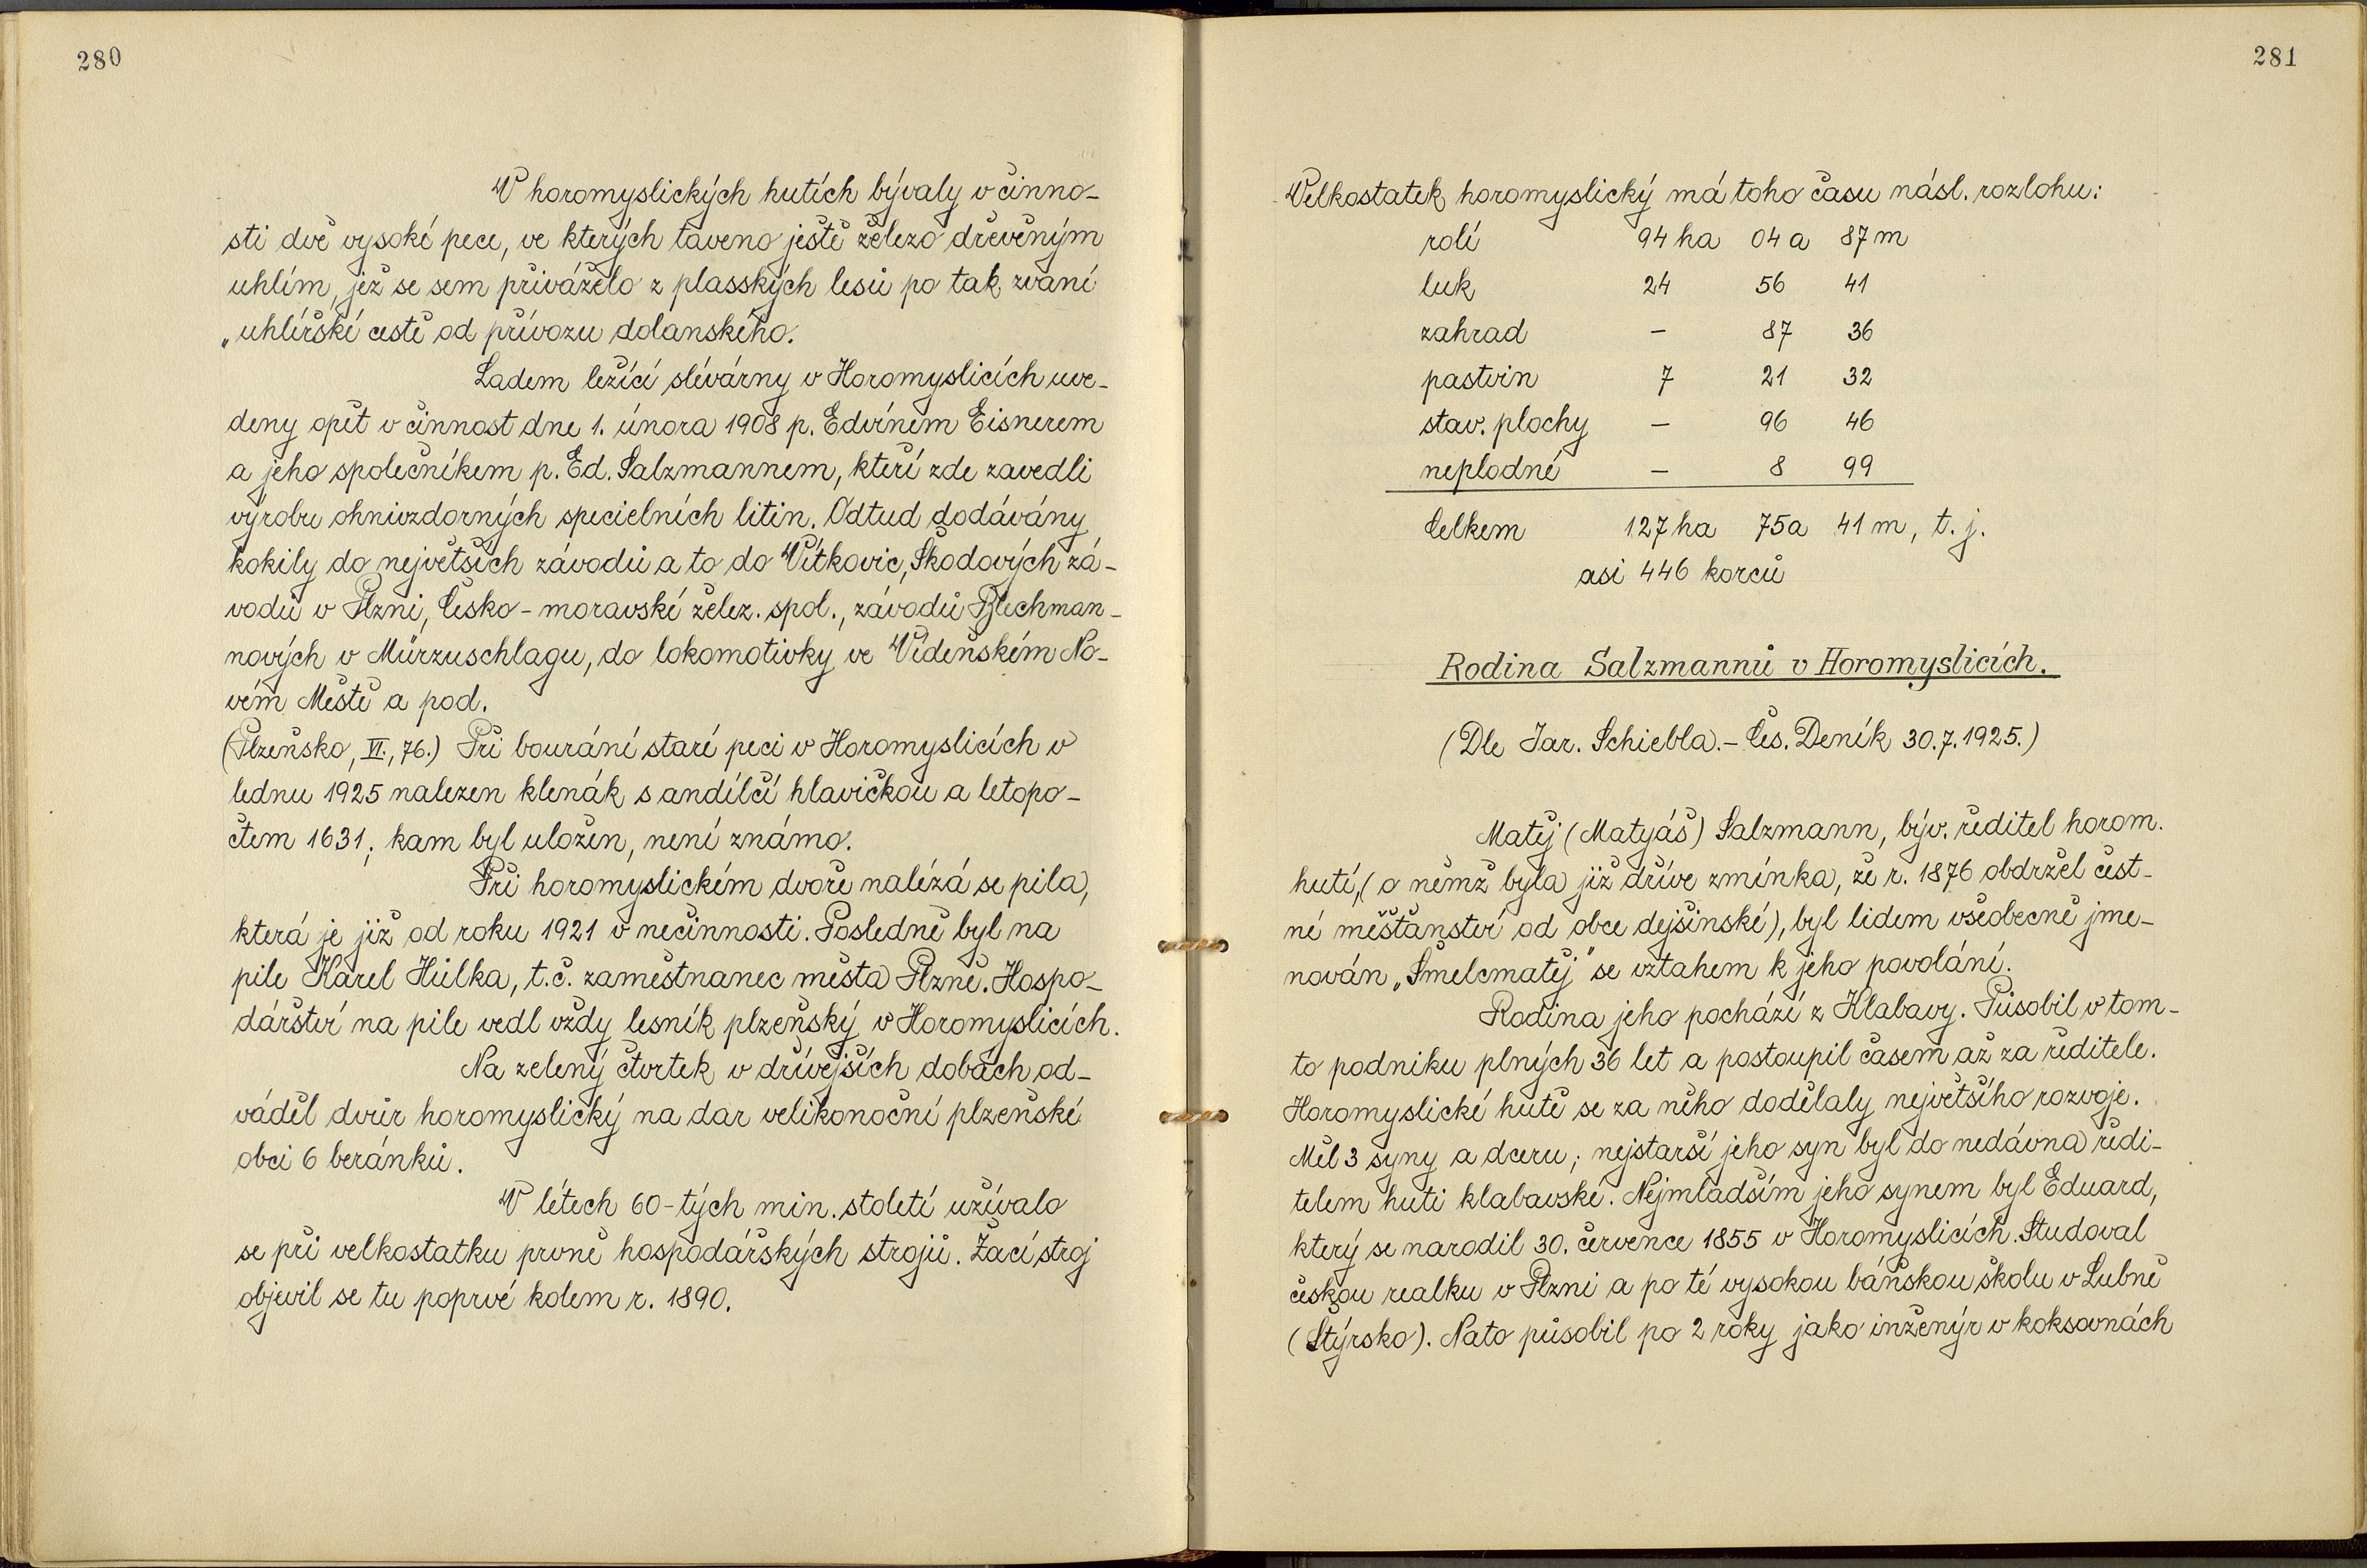 280
V horomyslických hutích bývaly v činno-
sti dvě vysoké pece, ve kterých taveno ještě železo dřevěným
uhlím, jež se sem přiváželo z plasských lesů po tak zvané
„uhlířské cestě od přívozu dolanského.
Ladem ležící slévárny v Horomyslicích uve-
deny opět v činnost dne 1. února 1908 p. Edvínem Eisnerem
a jeho společníkem p. Ed. Salzmannem, kteří zde zavedli
výrobu ohnivzdorných specielních litin. Odtud dodávány
kokily do největších závodů a to do Vítkovic, Škodových zá-
vodů v Plzni, Česko-moravské želez. spol., závodů Blechman-
nových v Mürzuschlagu, do lokomotivky ve Vídeňském No-
vém Městě a pod.
(Plzeňsko, VI., 76.) Při bourání staré peci v Horomyslicích v
lednu 1925 nalezen klenák s andílčí hlavičkou a letopo-
čtem 1631; kam byl uložen, není známo.
Při horomyslickém dvoře nalézá se pila,
která je již od roku 1921 v nečinnosti. Posledně byl na
pile Karel Hůlka, t.č. zaměstnanec města Plzně. Hospo-
dářství na pile vedl vždy lesník plzeňský v Horomyslicích.
Na zelený čtvrtek v dřívějších dobách od-
váděl dvůr horomyslický na dar velikonoční plzeňské
obci 6 beránků.
V létech 60-tých min. století užívalo
se při velkostatku prvně hospodářských strojů. Žací stroj
objevil se tu poprvé kolem r. 1890.
281
Velkostatek horomyslický má toho času násl. rozlohu:
rolí 94 ha 04 a 87 m
luk 24 56 41
zahrad – 87 36
pastvin 7 21 32
stav. plochy – 96 46
neplodné – 8 99
Celkem 127 ha 75 a 41 m, t. j.
asi 446 korců
Rodina Salzmannů v Horomyslicích.
(Dle Jar. Schiebla. – Čes. Deník 30.7.1925.)
Matěj (Matyáš) Salzmann, býv. ředitel horom.
hutí, (o němž byla již dříve zmínka, že r. 1876 obdržel čest-
né měšťanství od obce dejšinské), byl lidem všeobecně jme-
nován „Šmelcmatěj" se vztahem k jeho povolání.
Rodina jeho pochází z Klabavy. Působil v tom-
to podniku plných 36 let a postoupil časem až za ředitele.
Horomyslické hutě se za něho dodělaly největšího rozvoje.
Měl 3 syny a dceru; nejstarší jeho syn byl do nedávna ředi-
telem huti klabavské. Nejmladším jeho synem byl Eduard,
který se narodil 30. července 1855 v Horomyslicích. Studoval
českou realku v Plzni a po té vysokou báňskou školu v Lubně
(Štýrsko). Nato působil po 2 roky jako inženýr v koksovnách